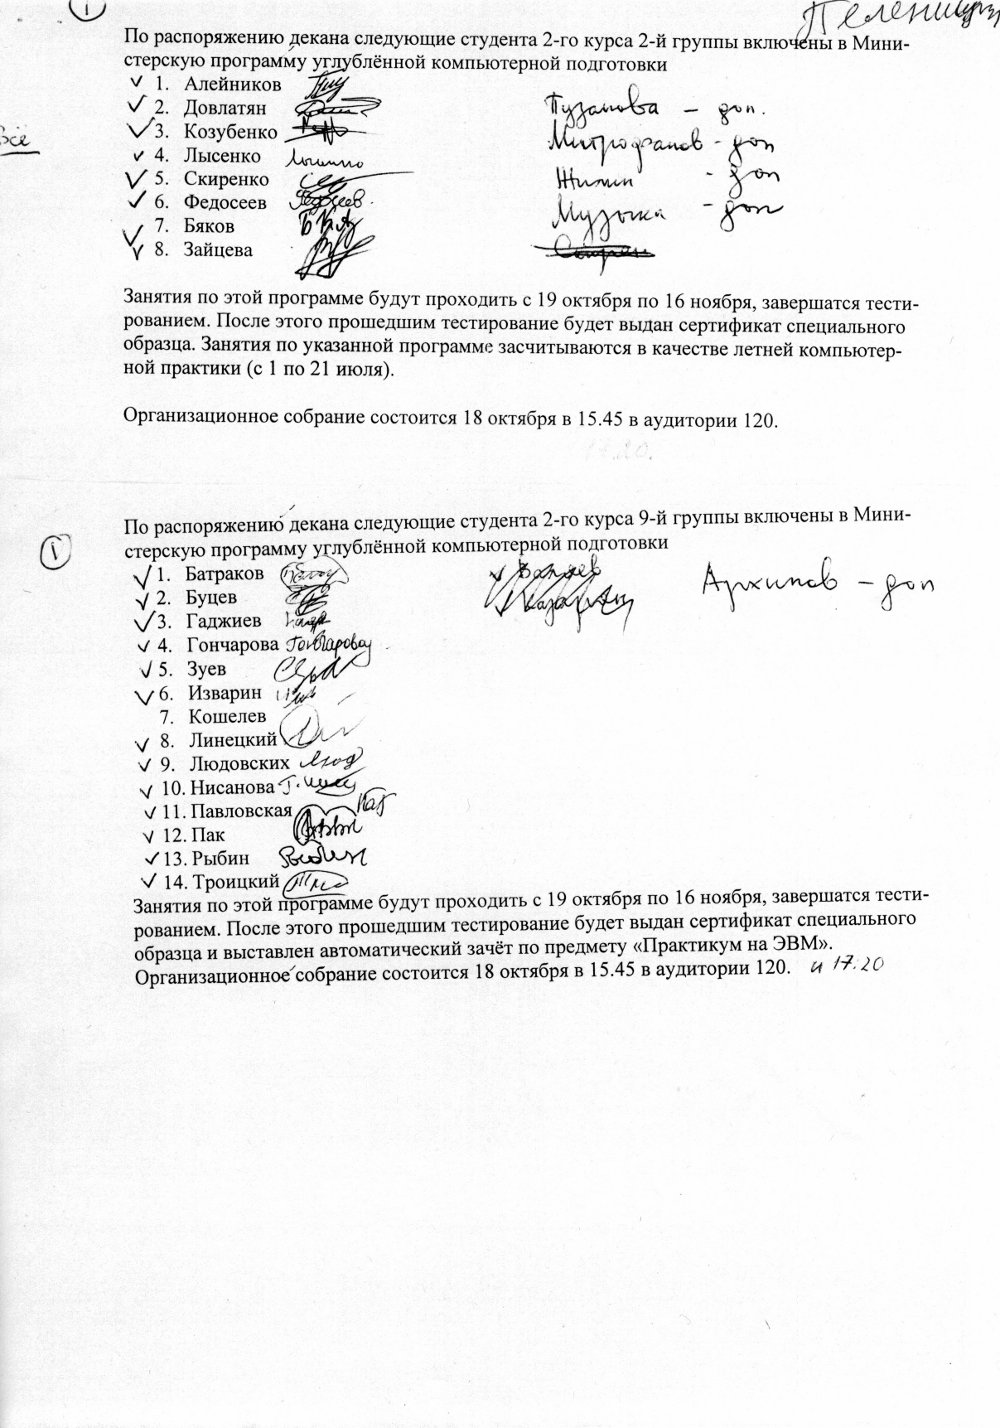 По распоряжению декана следующие студента 2-го курса 2-й группы включены в Мини-
стерскую программу углублённой компьютерной подготовки
1. Алейников
2. Довлатян Пузанова – доп.
3. Козубенко Митрофанов - доп
4. Лысенко
всё
5. Скиренко - доп
6. Федосеев Федосеев. Музыка - доп
7. Бяков
8. Зайцева
Занятия по этой программе будут проходить с 19 октября по 16 ноября, завершатся тести-
рованием. После этого прошедшим тестирование будет выдан сертификат специального
образца. Занятия по указанной программе засчитываются в качестве летней компьютер-
ной практики (с 1 по 21 июля).
Организационное собрание состоится 18 октября в 15.45 в аудитории 120.
По распоряжению декана следующие студента 2-го курса 9-й группы включены в Мини-
стерскую программу углублённой компьютерной подготовки
1
1. Батраков Архипов – доп
2. Буцев
3. Гаджиев
4. Гончарова Гончарова
5. Зуев
6. Изварин
7. Кошелев
8. Линецкий
9. Людовских
10. Нисанова
11. Павловская
12. Пак
13. Рыбин
14. Троицкий
Занятия по этой программе будут проходить с 19 октября по 16 ноября, завершатся тести-
рованием. После этого прошедшим тестирование будет выдан сертификат специального
образца и выставлен автоматический зачёт по предмету «Практикум на ЭВМ».
Организационное собрание состоится 18 октября в 15.45 в аудитории 120. и 17.20